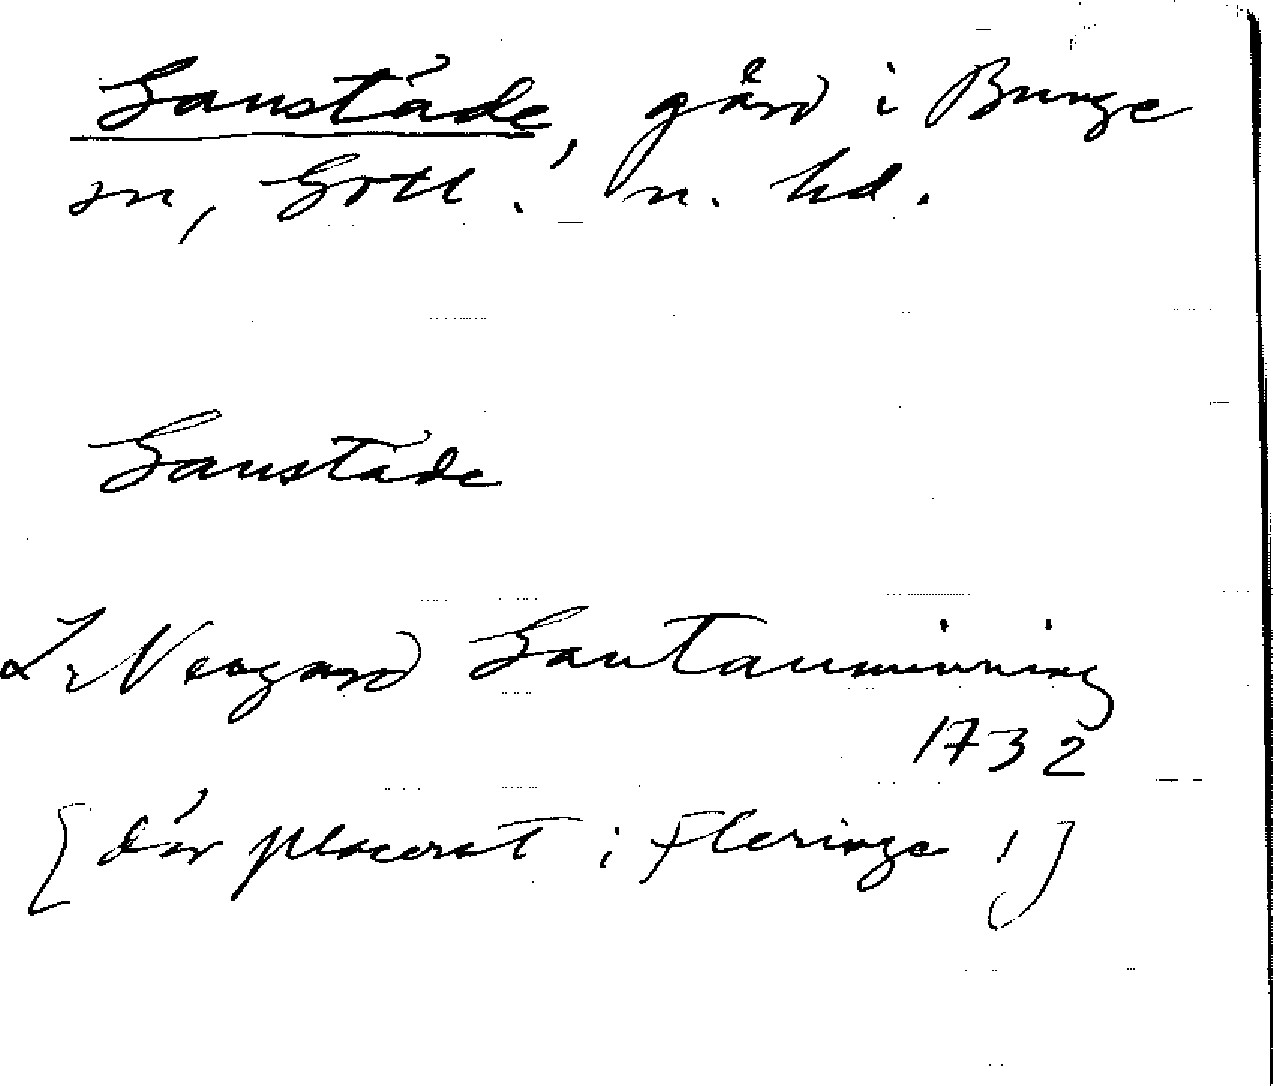 Gaustäde, gård i Bunge
sn, Gotl. n. hd.
Gaustäde
Neogard Gautauminning
1732
[där placerat i Fleringe!]